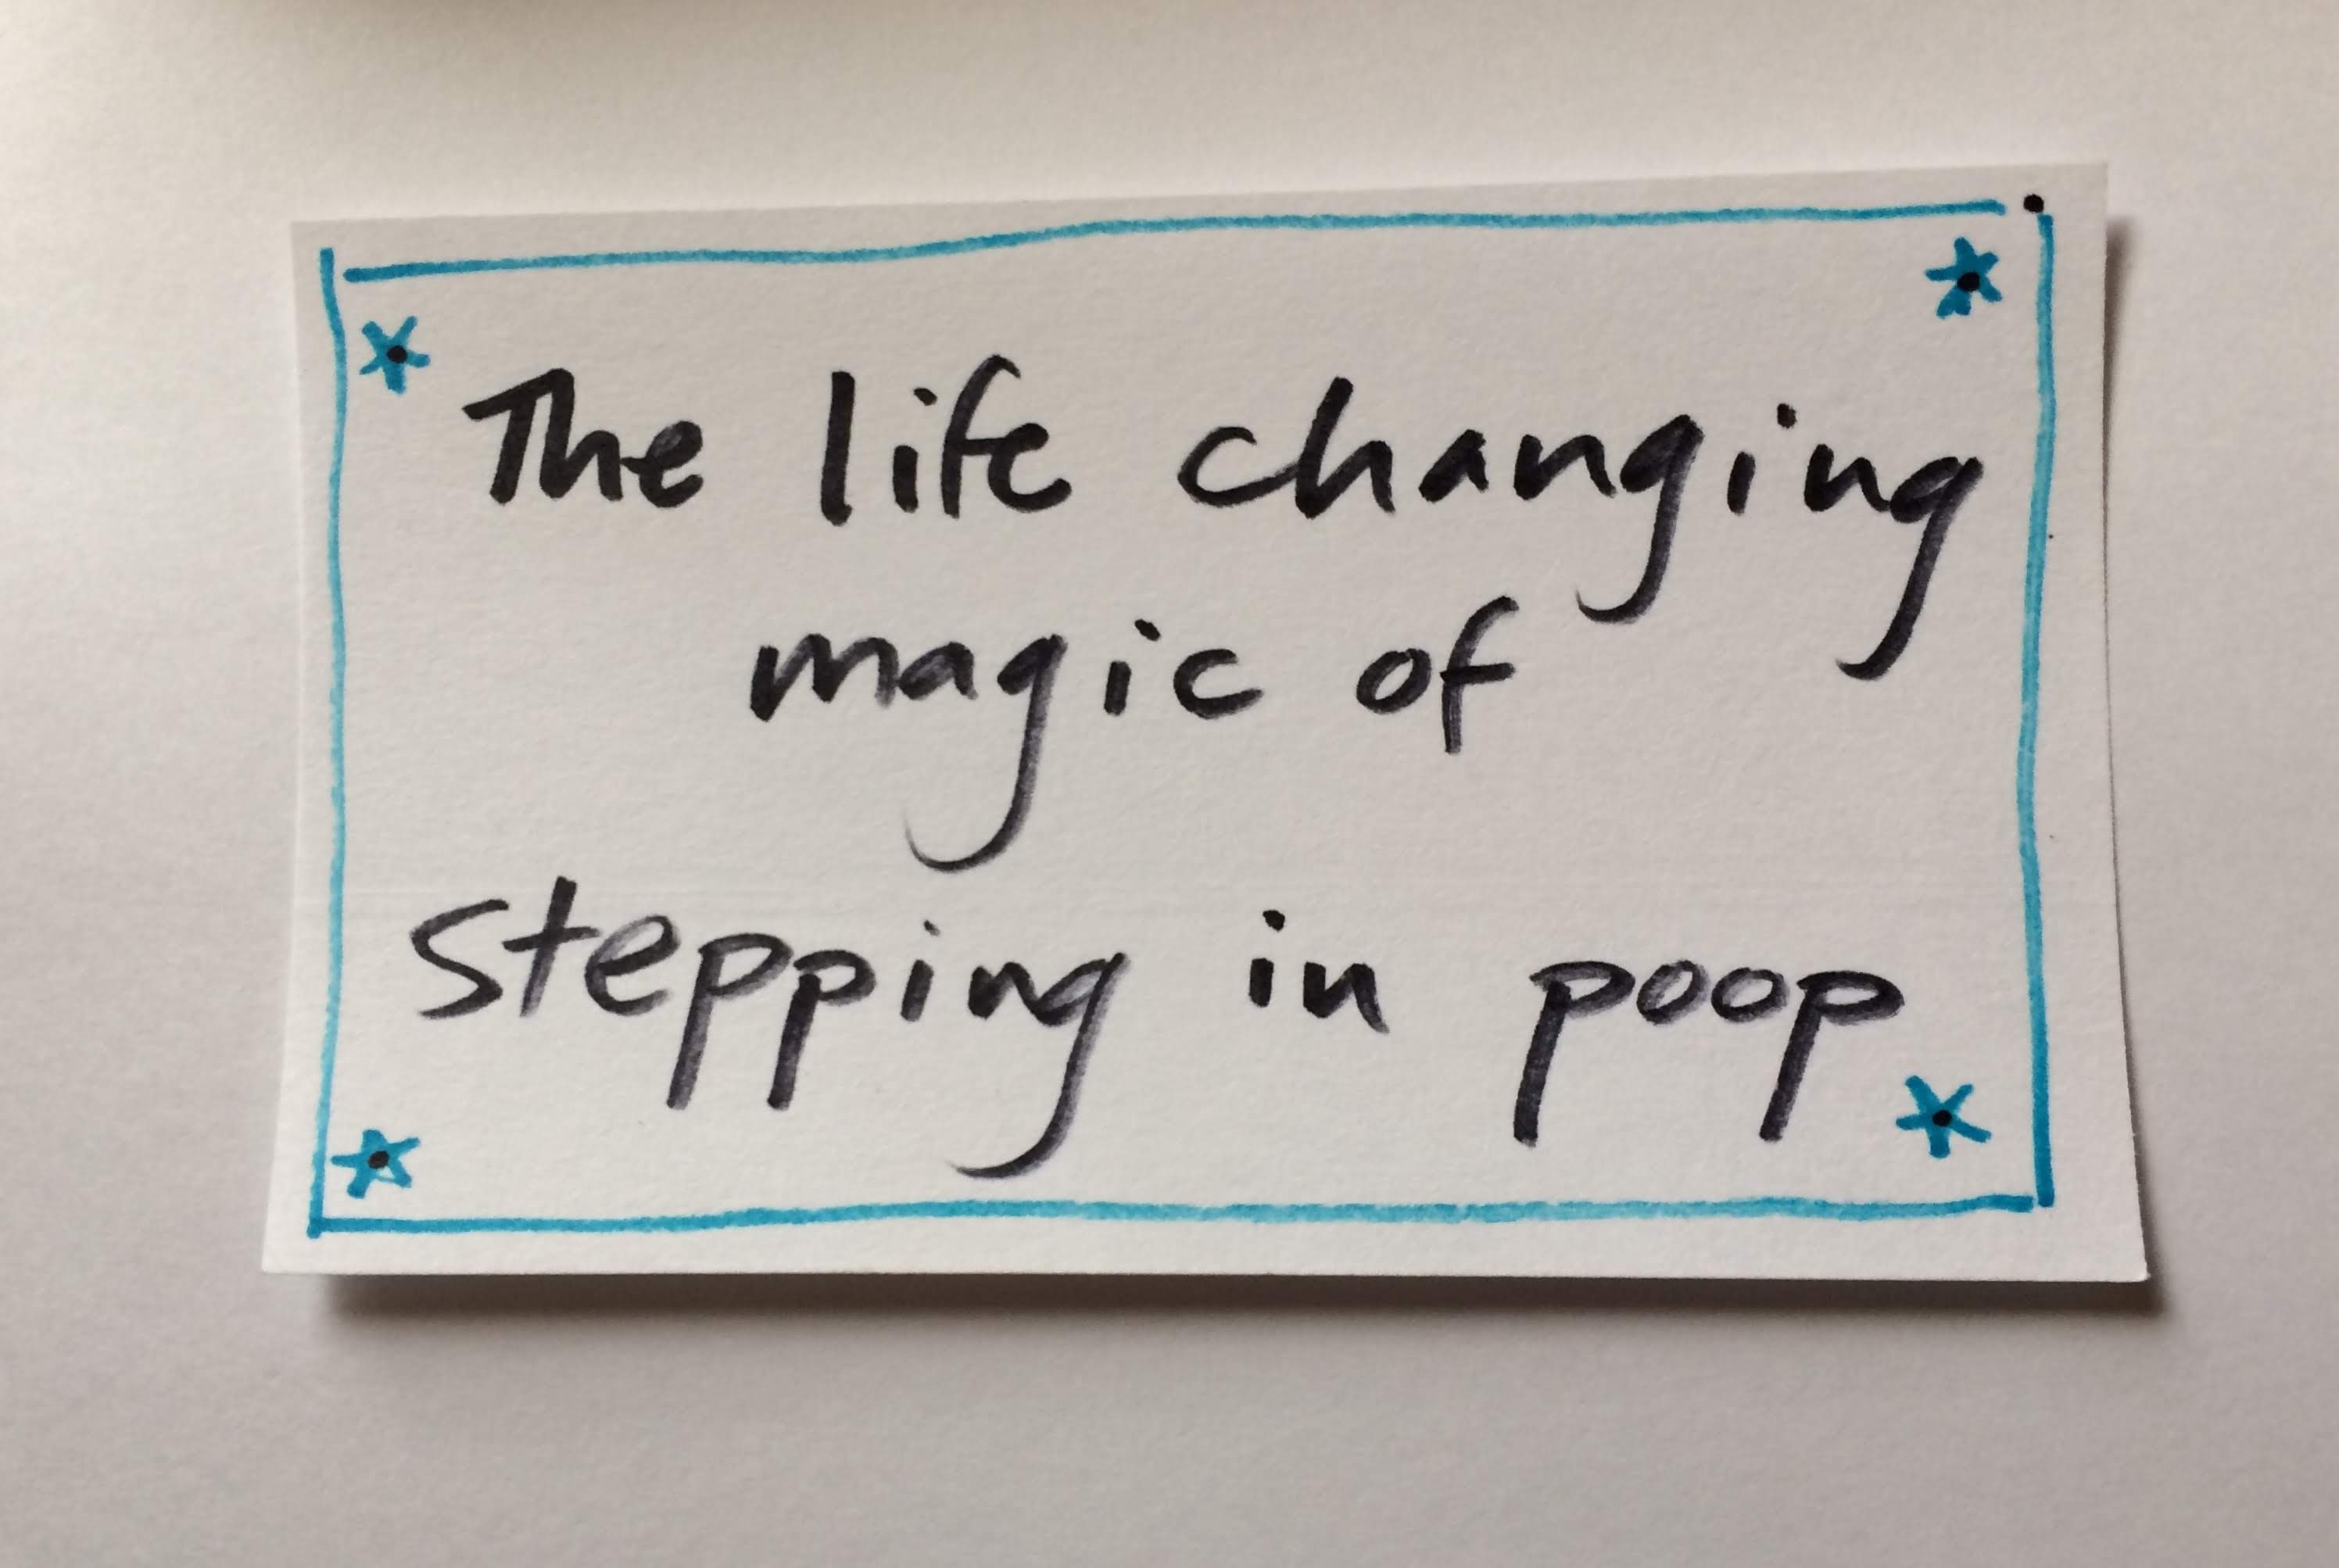 The life changing
magic of
stepping in poop